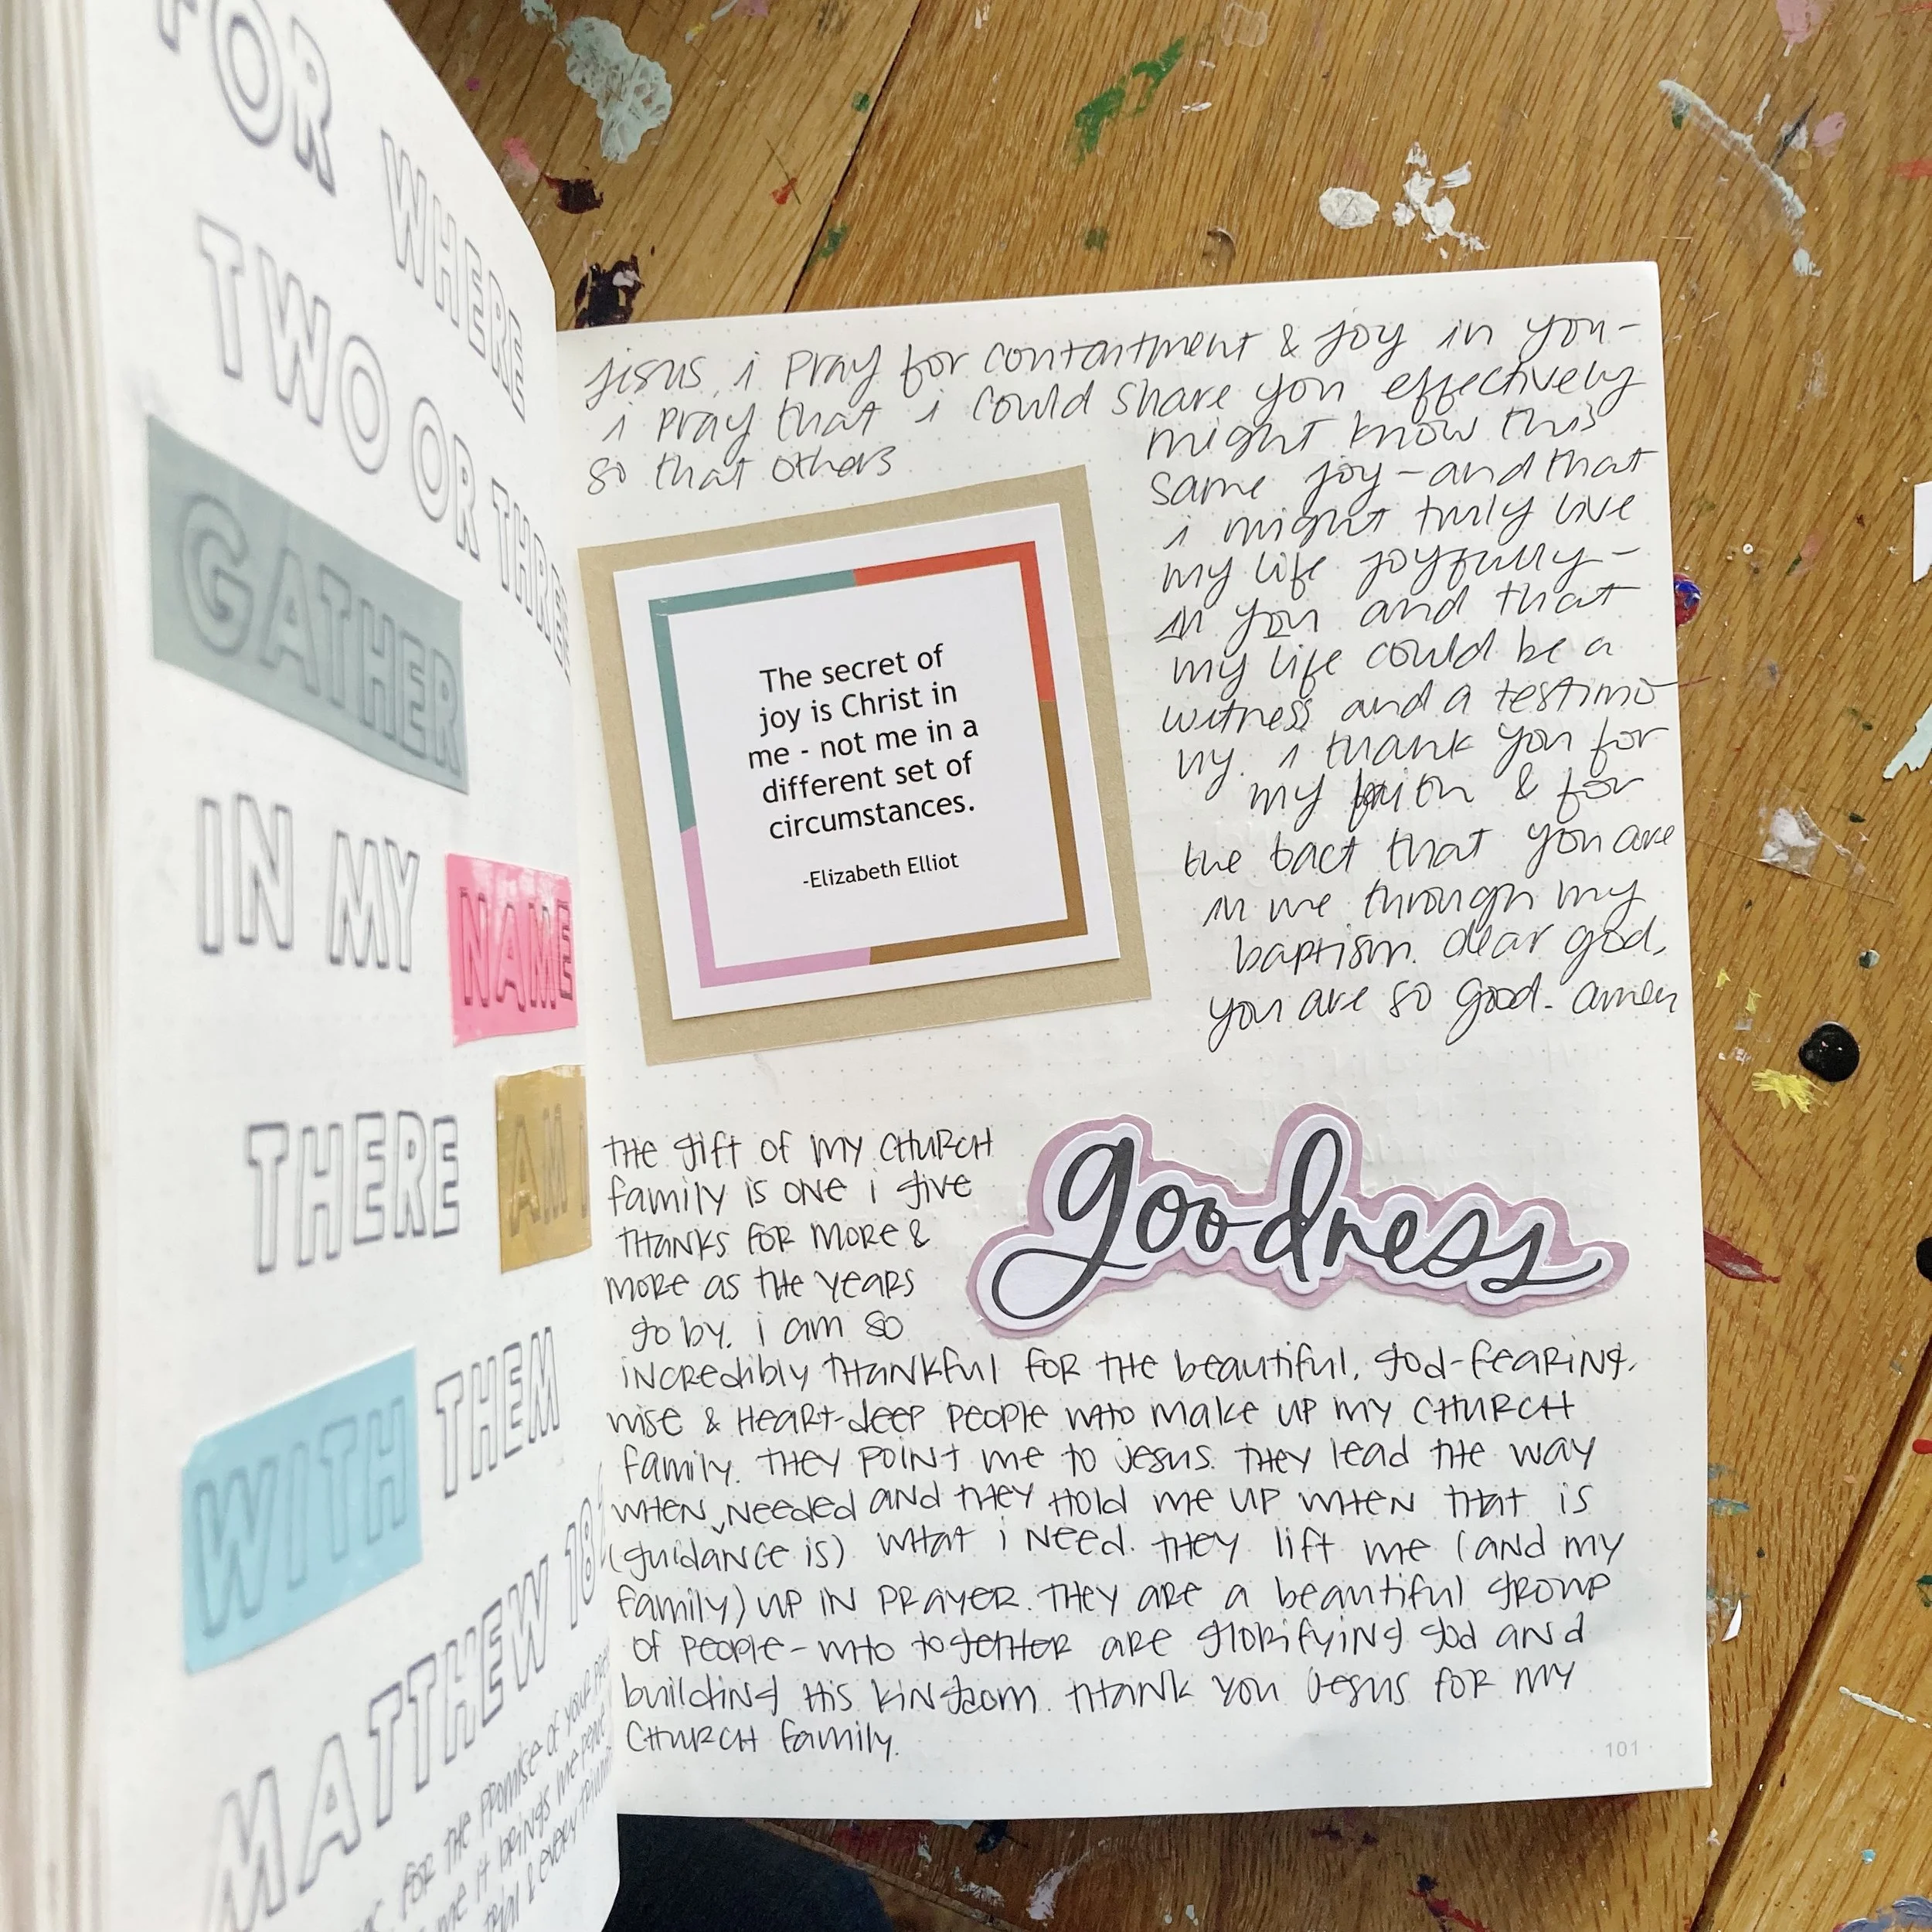 FOR WHERE
TWO OR THREE
GATHER
IN MY NAME
THERE AM I
WITH THEM
MATTHEW 18:
FOR THE PROMISE OF YOUR
me it brings me
trial & every
jesus, i pray for contentment & joy in you-
i pray that i could share you effectively
so that others
might know this
same joy-and that
i might truly live
my life joyfully-
in you and that
my life could be a
witness and a testimo
ny. i thank you for
my faith & for
the fact that you are
in me through my
baptism. dear god,
you are so good. amen
The secret of
joy is Christ in
me - not me in a
different set of
circumstances.
-Elizabeth Elliot
THE gift of my CHURCH
family is one i give
THANKS FOR MORE &
MORE as THE years
go by. i am so
goodness
incredibly THankful FOR THE beautiful, god-fearing,
wise & Heart-deep people wHo make up my CHURCH
family. THEY POINT me to jesus. THEY lead THE way
wHen needed and THEY Hold me UP wHen THat is
(guidance is) wHat i need. THEY lift me (and my
family) up in prayer. THEY are a beautiful group
of people-wHo togetHer are glorifying god and
building His kingdom. THank you Jesus FOR my
CHURCH family.
101